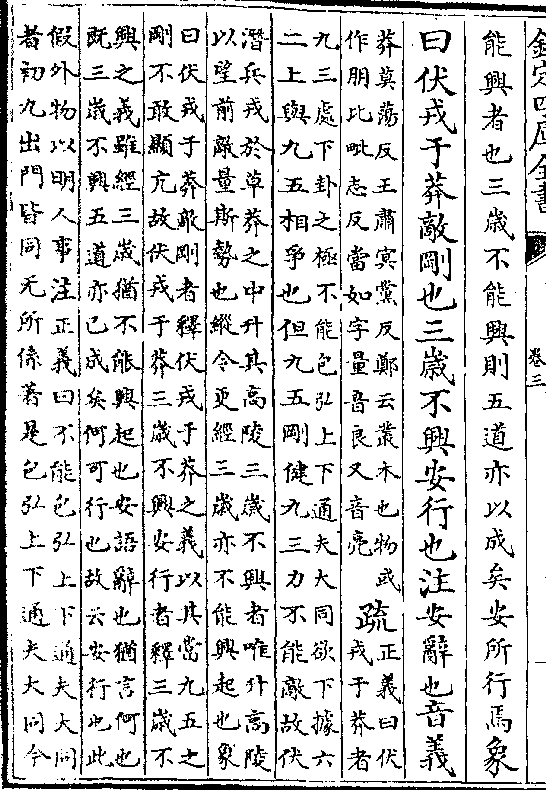 欽定四庫全書
卷三
能興者也三歲不能興則五道亦以成矣安所行焉象
曰伏戎于莽敵剛也三歲不興安行也注安辭也音義
莽莫蕩反王肅冥黨反鄭云叢木也物或
作朋比毗志反當如字量音良又音亮
疏
正義曰伏
戎于莽者
九三處下卦之極不能包弘上下通夫大同欲下據六
二上與九五相爭也但九五剛健九三力不能敵故伏
潛兵戎於草莽之中升其高陵三歲不興者唯升高陵
以望前敵量斯勢也縱令更經三歲亦不能興起也象
曰伏戎于莽敵剛者釋伏戎于莽之義以其當九五之
剛不敢顯亢故伏戎于莽三歲不興安行者釋三歲不
興之義雖經三歲猶不能興起也安語辭也猶言何也
既三歲不興五道亦已成矣何可行也故云安行也此
假外物以明人事注正義曰不能包弘上下通夫大同
者初九出門皆同无所係著是包弘上下通夫大同今